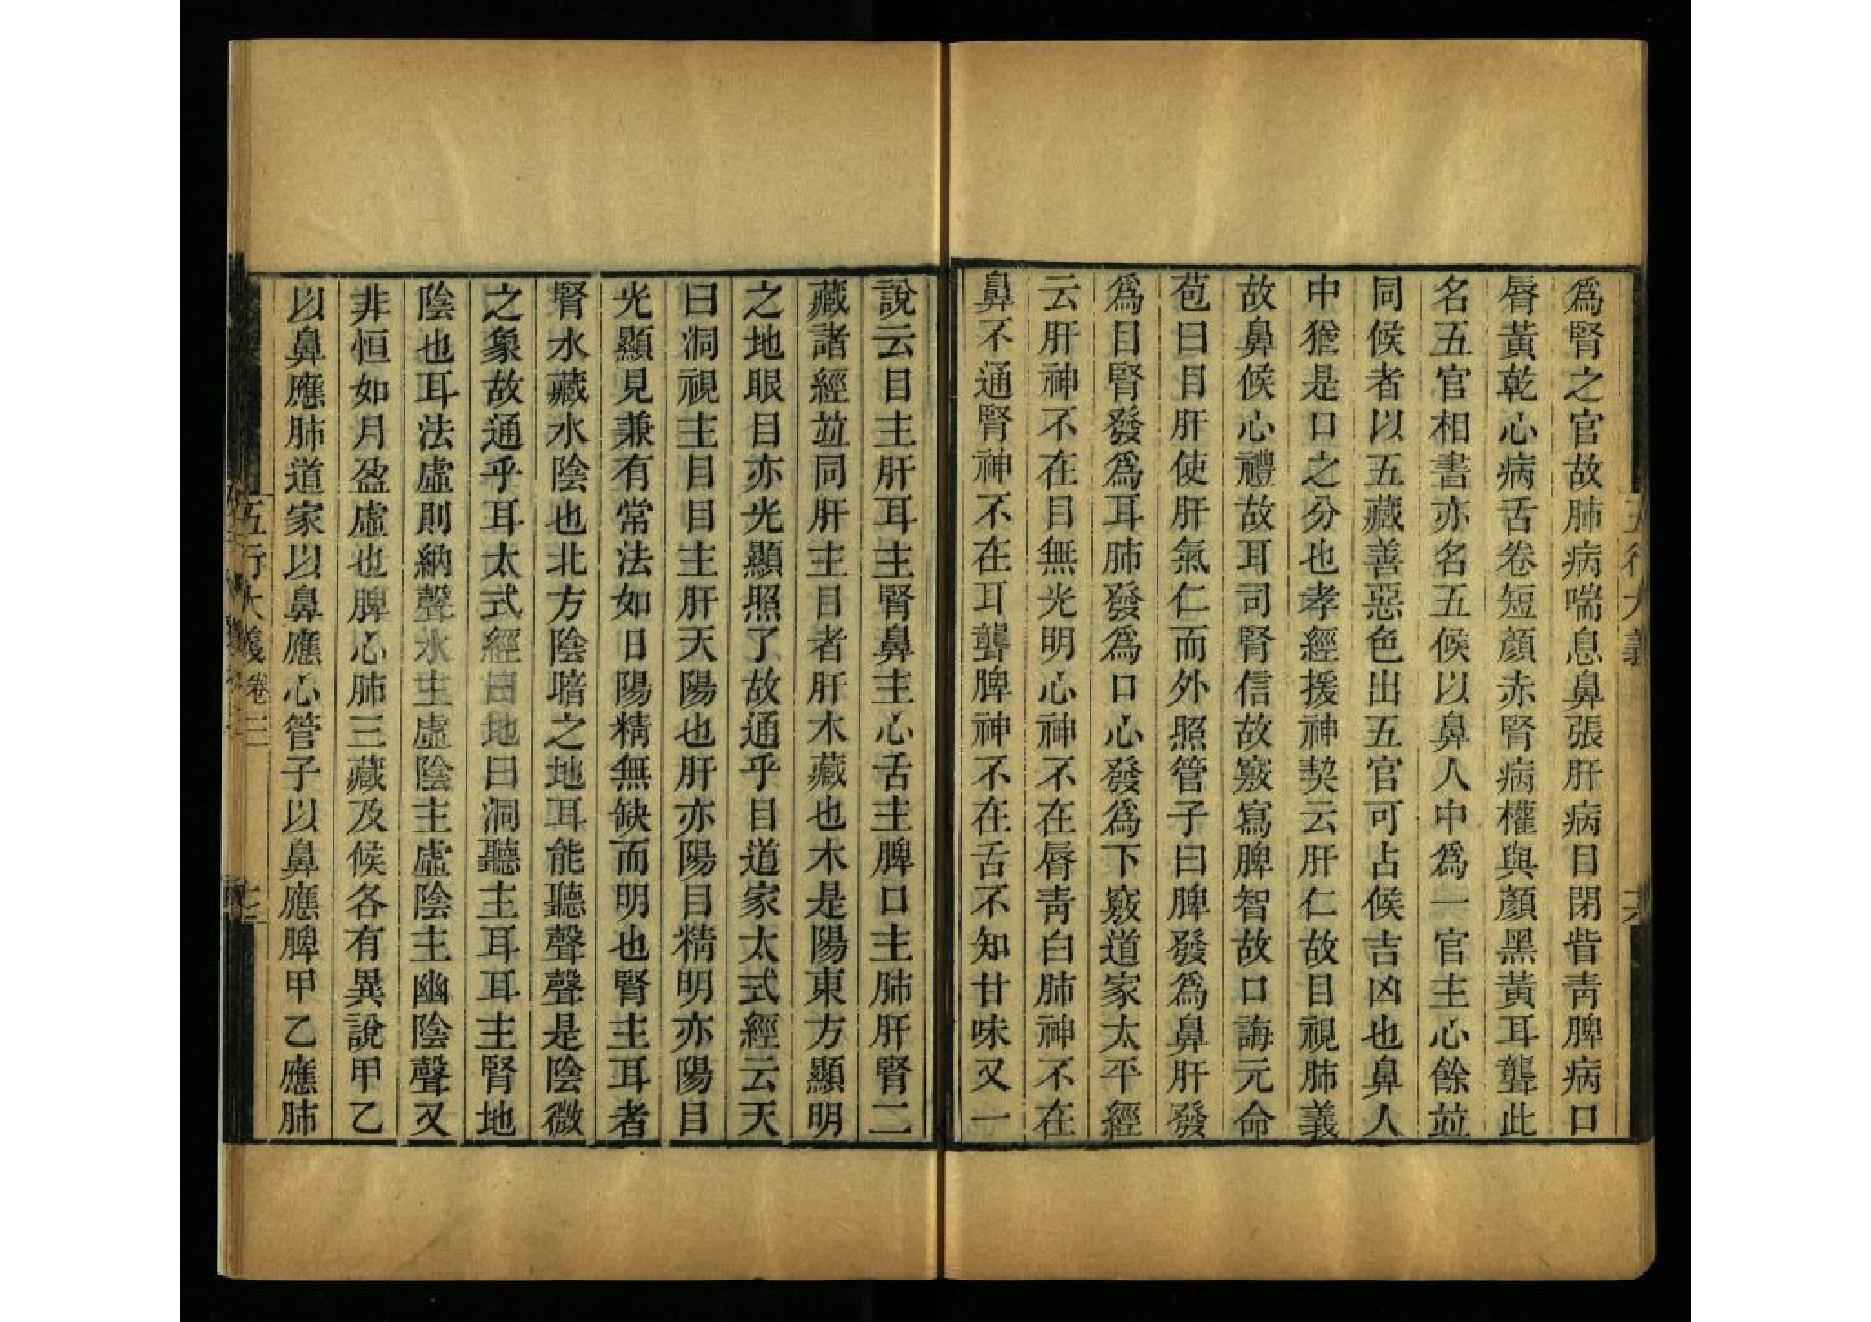 爲腎之官故肺病喘息鼻張肝病目閉眥靑脾病口
脣黃乾心病舌卷短顏赤腎病權與顏黑黃耳聾此
名五官相書亦名五候以鼻人中爲一官主心餘竝
同候者以五藏善惡色出五官可占候吉凶也鼻人
中猶是口之分也孝經援神契云肝仁故目視肺義
故鼻候心禮故耳司腎信故竅寫脾智故口誨元命
苞曰目肝使肝氣仁而外照管子曰脾發爲鼻肝發
爲目腎發爲耳肺發爲口心發爲下竅道家太平經
云肝神不在目無光明心神不在脣靑白肺神不在
鼻不通腎神不在耳聾脾神不在舌不知甘味又一
說云目主肝耳主腎鼻主心舌主脾口主肺肝腎二
藏諸經竝同肝主目者肝木藏也木是陽東方顯明
之地眼目亦光顯照了故通乎目道家太式經云天
曰洞視主目目主肝天陽也肝亦陽目精明亦陽目
光顯見兼有常法如日陽精無缺而明也腎主耳者
腎水藏水陰也北方陰暗之地耳能聽聲聲是陰微
之象故通乎耳太式經曰地曰洞聽主耳耳主腎地
陰也耳法虛則納聲水主虛陰主虛陰主幽陰聲又
非恒如月盈虛也脾心肺三藏及候各有異說甲乙
以鼻應肺道家以鼻應心管子以鼻應脾甲乙應肺
五行大義 卷三
七